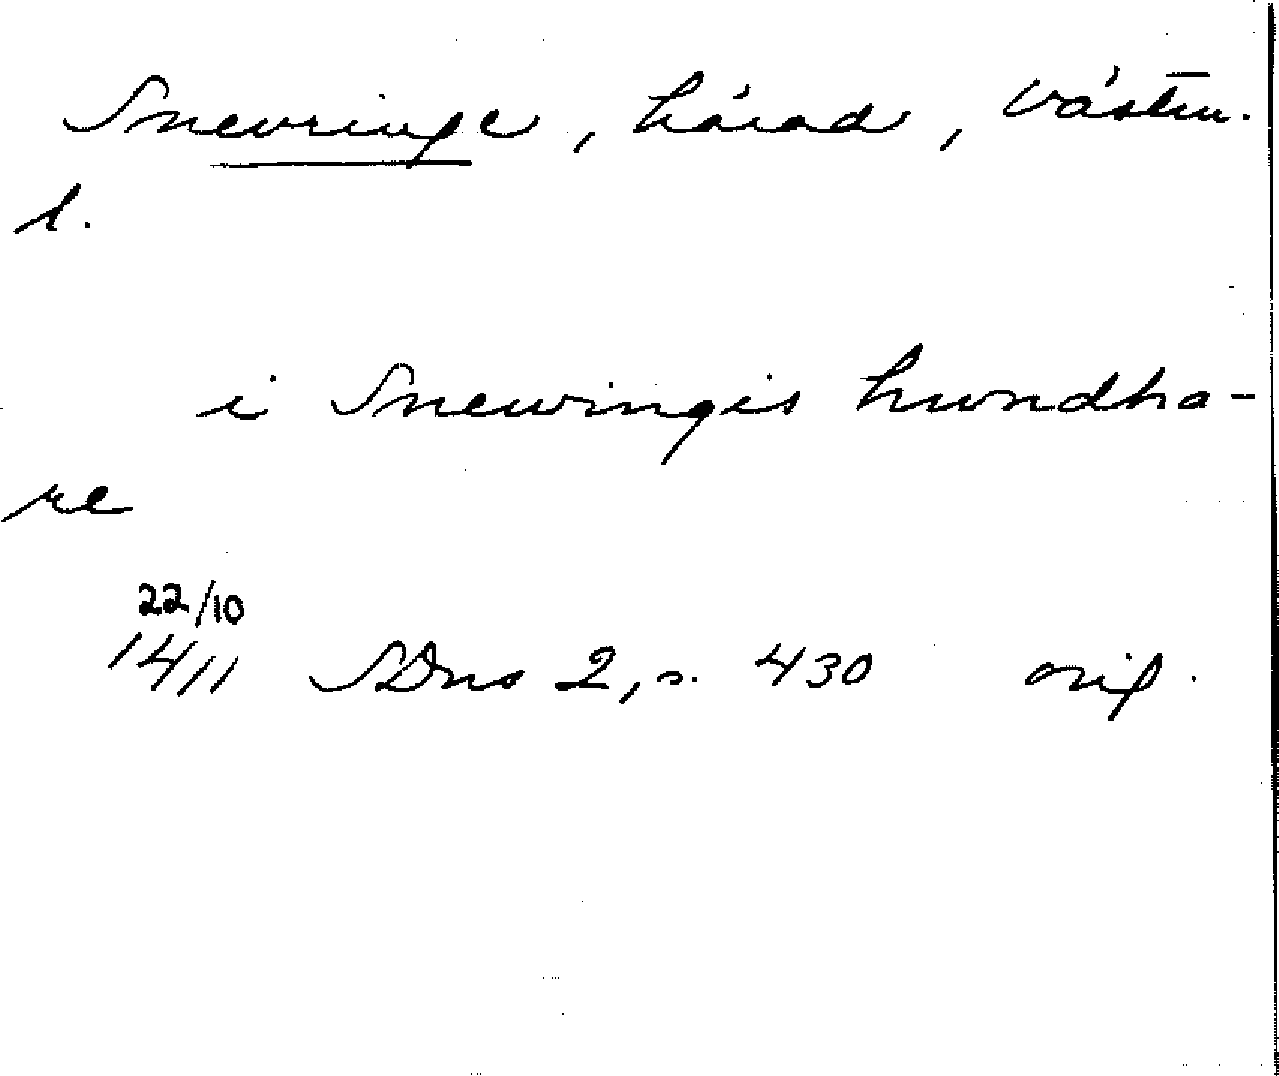 Snevringe, härad, Västm.
l.
i Snewringis hundha-
re
22/10
1411 SDns 2, s. 430 orig.